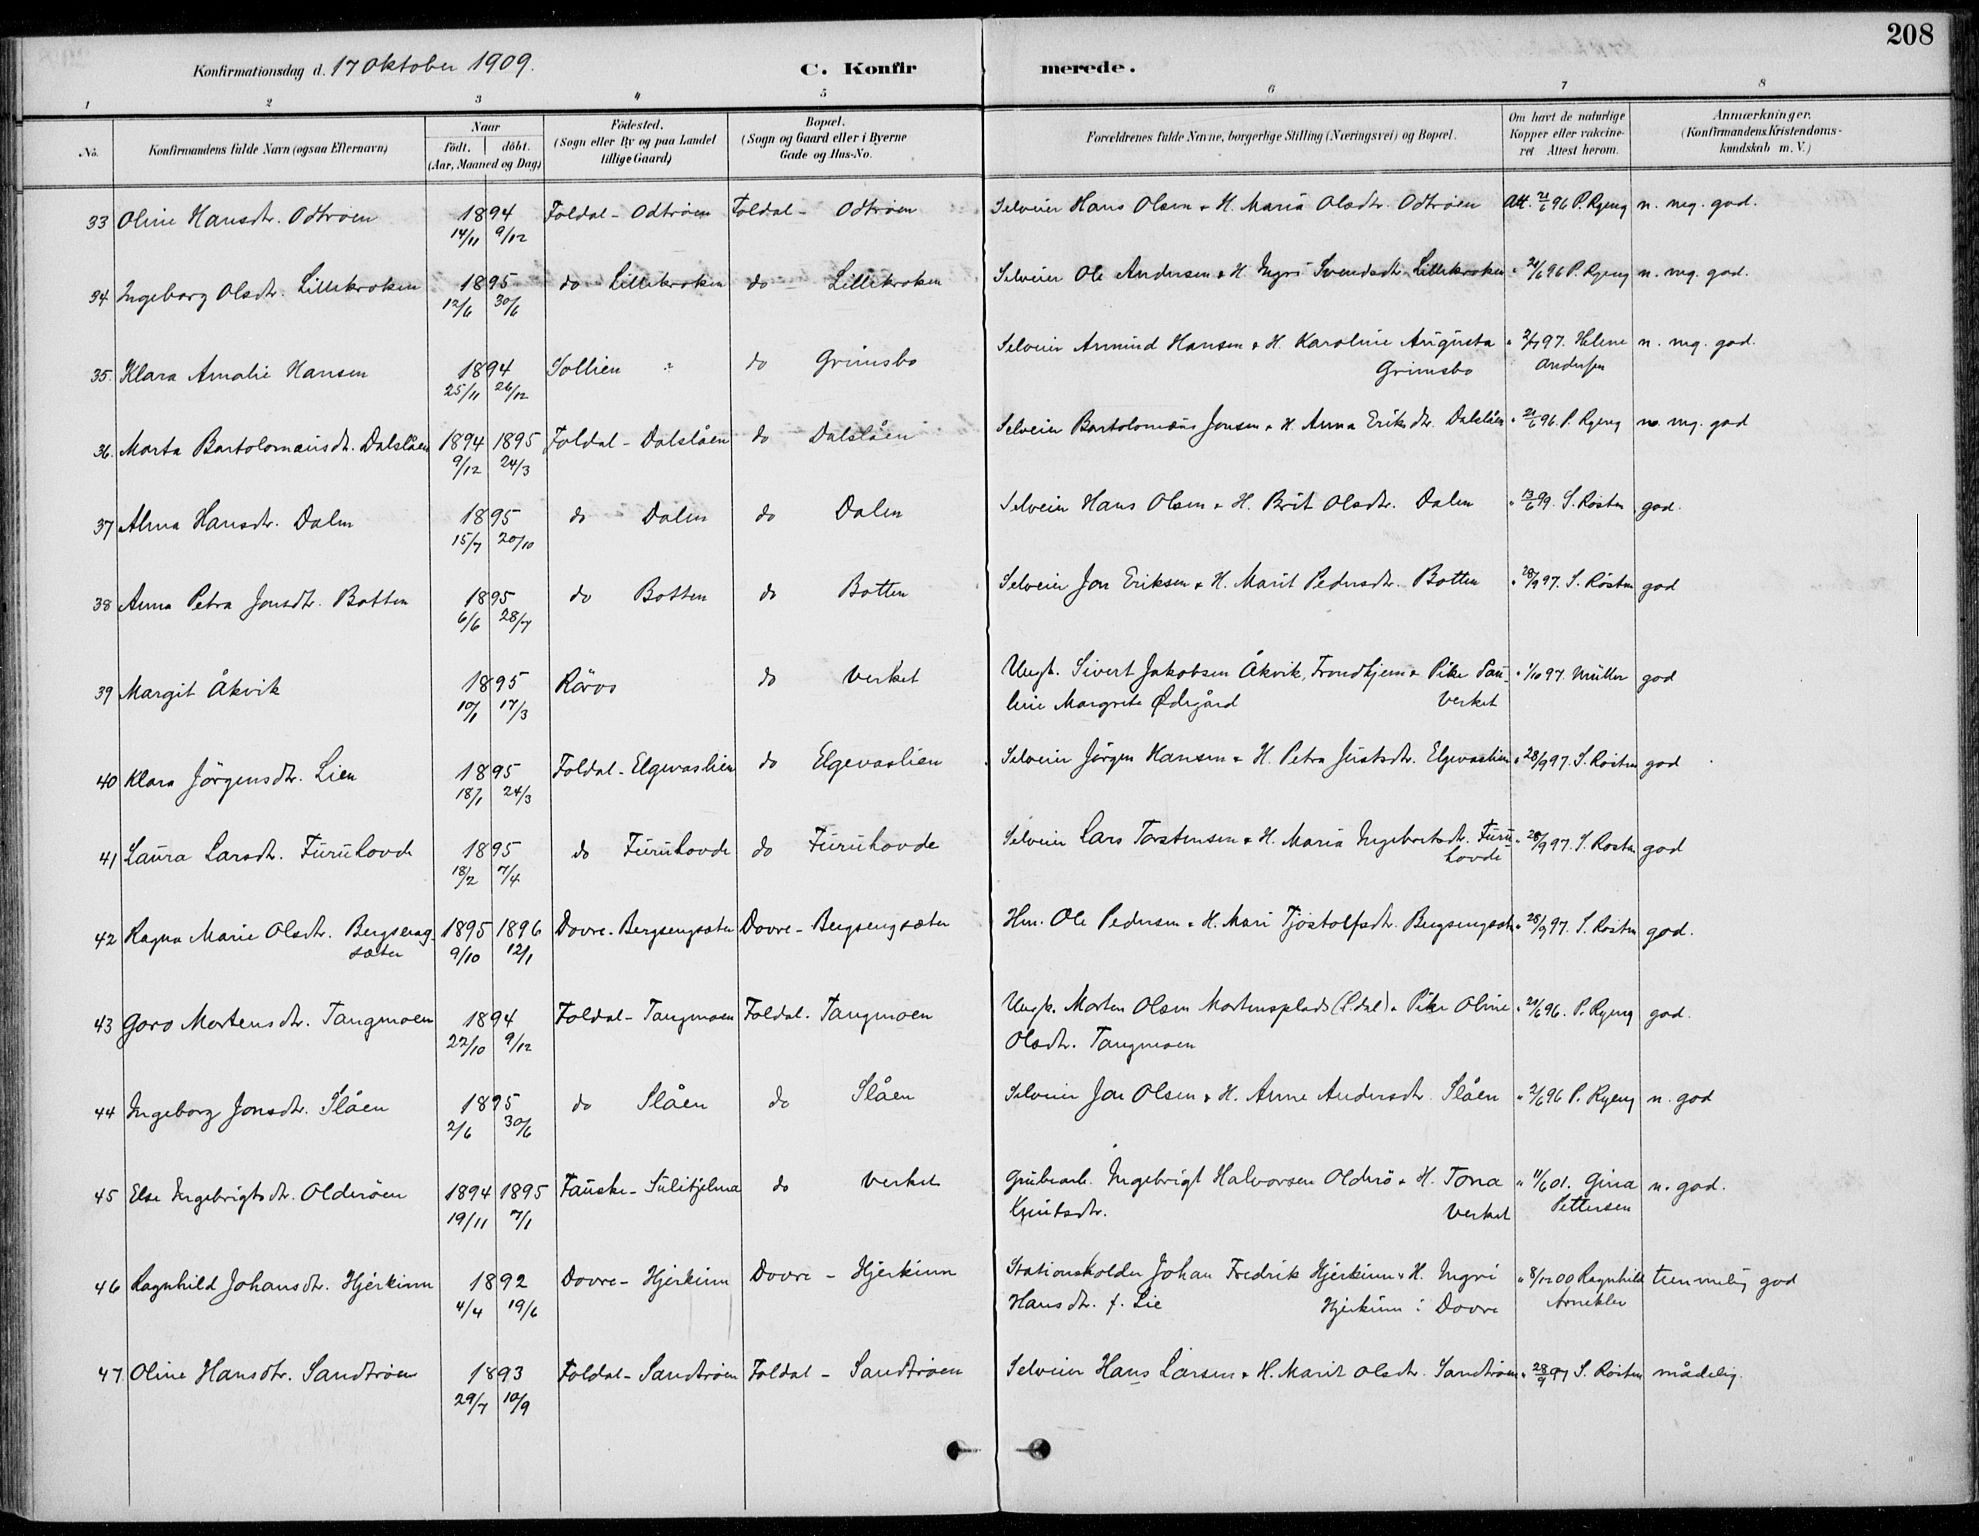 208
Konfirmationsdag d. 17 Oktober 1909.
C. Konfirmerede.
1 2 3 4 5 6 7 8
No. | Konfirmandens fulde Navn (ogsaa Efternavn) | Naar født. døbt. (Aar, Maaned og Dag) | Födested. (Sogn eller By og paa Landet tillige Gaard) | Bopæl. (Sogn og Gaard eller i Byerne Gade og Hus-No. | Forældrenes fulde Navne, borgerlige Stilling (Næringsvei) og Bopæl. | Om havt de naturlige Kopper eller vakcineret Attest herom. | Anmærkninger. (Konfirmandens Kristendomskundskab m. V.)
33 Oline Hansdtr. Odtrøen 1894 14/11 9/12 Foldal - Odtrøen Foldal - Odtrøen Selveier Hans Olsen & H. Maria Olsdtr. Odtrøen Att. 21/6 96 P. Ryeng n. meg. god.
34 Ingeborg Olsdtr. Lillekroken 1895 12/6 30/6 do Lillekroken do Lillekroken Selveier Ole Andersen & H. Ingri Svendsdtr. Lillekroken " 21/6 96 P. Ryeng n. mg. god.
35. Klara Amalie Hansen 1894 25/11 26/12 Sollien " do Grimsbo Selveier Anmund Hansen & H. Karoline Augusta Grimsbo " 2/7 97. Helene Andersen n. mg. god.
36. Marta Bartolomæusdt. Dalslåen 1894 1895 9/12 24/3 Foldal - Dalslåen do Dalslåen Selveier Bartolomæus Jonsen & H. Anna Eriksdtr. Dalslåen " 21/6 96. P. Ryeng n. mg. god
37 Alma Hansdtr. Dalen 1895 15/7 20/10 do Dalen do Dalen Selveier Hans Olsen & H. Brit Olsdtr. Dalen " 13/6 99. S. Rosten god.
38 Anna Petra Jonsdtr. Botten 1895 6/6 28/7 do Botten do Botten Selveier Jon Eriksen & H. Marit Pedersdtr. Botten " 28/9 97. S. Rosten god
39 Margit Åkvik 1895 10/1 17/3 Röros do Verket Ungk. Sivert Jakobsen Åkvik, Trondhjem & Pike Pauline Margrete Ødegård Verket " 1/10 97. Müller god
40 Klara Jörgensdtr. Lien 1895 18/1 24/3 Foldal - Elgevaslien do Elgevaslien Selveier Jörgen Hansen & H. Petra Justsdtr. Elgevaslien " 28/9 97. S. Rosten god
41 Laura Larsdtr. Furuhovde 1895 18/2 7/4 do Furuhovde do Furuhovde Selveier Lars Torstensen & H. Maria Ingebretsdtr. Furuhovde " 28/9 97. S. Rosten god
42 Ragna Marie Olsdtr. Bergsengsæter 1895 1896 9/10 12/1 Dovre - Bergsengsæter Dovre - Bergsengsæter Hm. Ole Pedersen & H. Mari Tjöstolfsdtr. Bergsengsæt. " 28/9 97. S. Rosten god.
43 Goro Mortensdtr. Tangmoen 1894 22/10 9/12 Foldal - Tangmoen Foldal. Tangmoen Ungk. Morten Olsen Mortensplads & Pike Oline Olsdtr. Tangmoen " 21/6 96. P. Ryeng god.
44 Ingeborg Jonsdtr. Slåen 1895 2/6 30/6 do Slåen do Slåen Selveier Jon Olsen & H. Anne Andersdtr. Slåen " 21/6 96 P. Ryeng n. god
45 Else Ingebrigtsdtr. Olderöen 1894 1895 19/11 7/1 Fauske - Sulitjelma do Verket Grubearb. Ingebrigt Halvorsen Olderö & H. Tona Knutsdtr. Verket " 11/6 01. Gina Pettersen n. god.
46 Ragnhild Johansdtr. Hjerkinn 1892 4/4 19/6 Dovre - Hjerkinn Dovre - Hjerkinn Stationsholder Johan Fredrik Hjerkinn & H. Ingri Hansdtr. f. Lie Hjerkinn i Dovre " 8/12 00 Ragnhild temmelig god
47 Oline Hansdtr. Sandtröen 1893 29/7 10/9 Foldal - Sandtröen Foldal - Sandtröen Selveier Hans Larsen & H. Marit Olsdtr. Sandtröen " 28/9 97 S. Rosten mådelig.